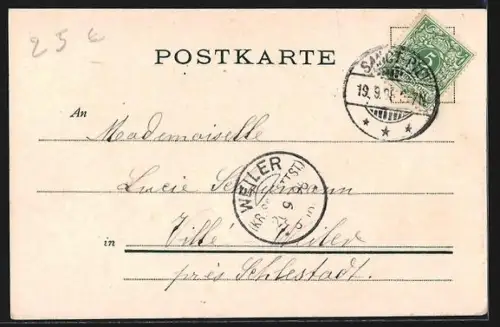 25 €
POSTKARTE
SANCT-PILT
19.9.
5
An
Mademoiselle
Lucie
WEILER
(KR. SCHLETTST)
9
in
Villé-Weiler
près Schlestadt.